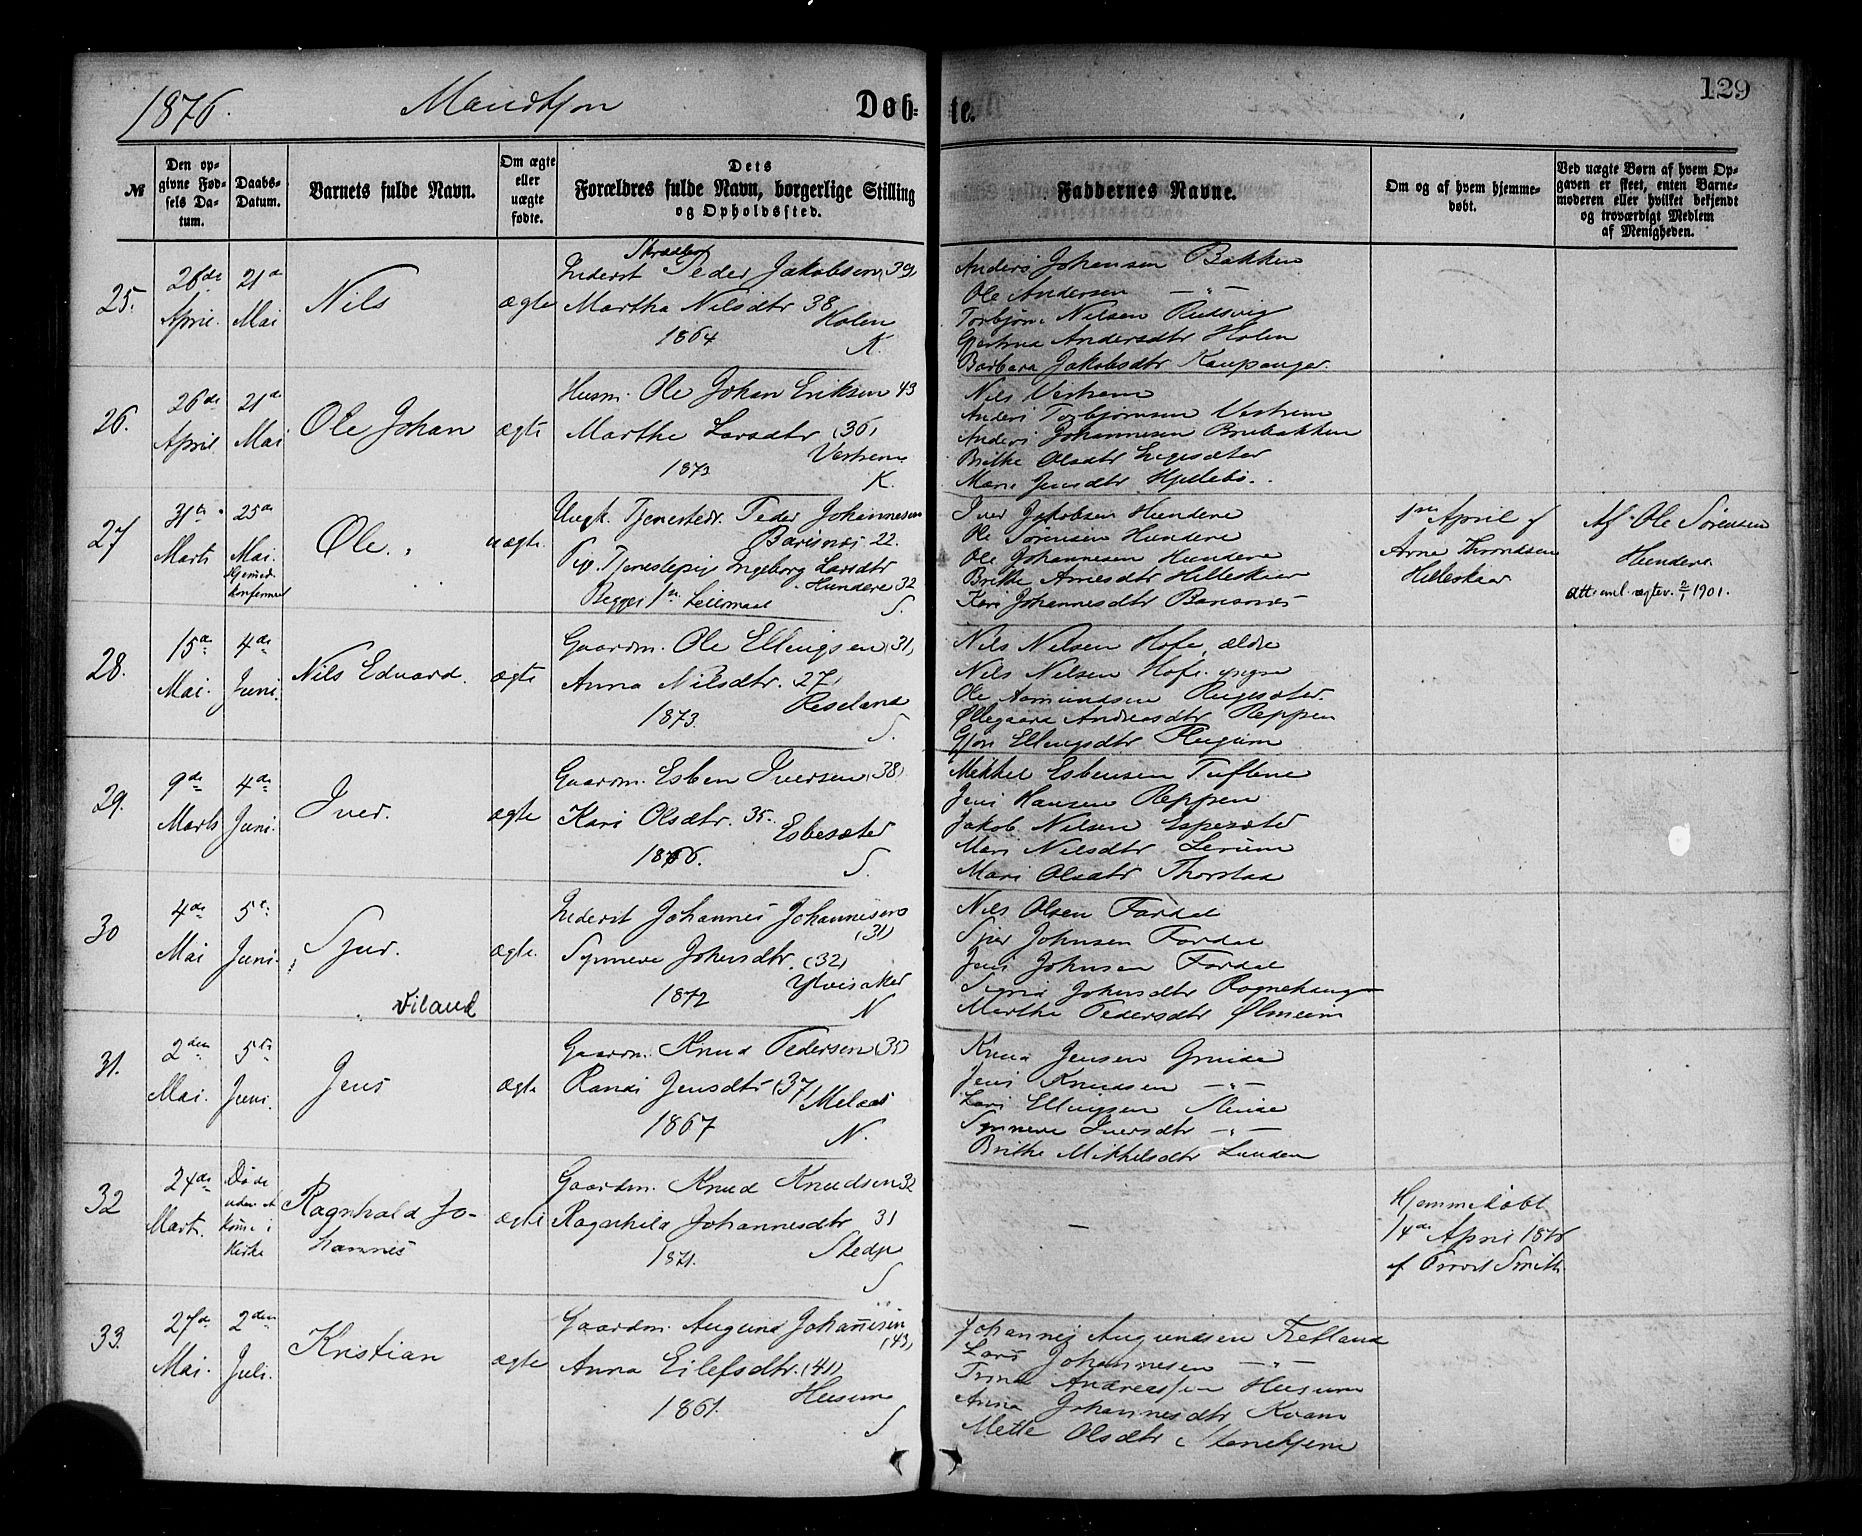 129
1876.
Mandkjøn
Døb-
te.
№
Den op-
givne Fød-
sels Da-
tum.
Daabs-
Datum.
Barnets fulde Navn.
Om ægte
eller
uægte
fødte.
Dets
Forældres fulde Navn, borgerlige Stilling
og Opholdssted.
Faddernes Navne.
Om og af hvem hjemme-
døbt.
Ved uægte Børn af hvem Op-
gaven er skeet, enten Barne-
moderen eller hvilket bekjendt
og troværdigt Medlem
af Menigheden.
25.
26de
April.
21de
Mai
Nils
ægte
Inderst Peder Jakobsen (39)
Martha Nilsdtr 38
Holen
1864
K.
Anders Johansen Bakken
Ole Andersen — " —
Torbjørn Nilsen
Gjertrud Andersdtr Holen
Barbara Jakobsdtr Kaupanger.
26.
26de
April
21de
Mai
Ole Johan
ægte
Husm. Ole Johan Eriksen 43
Marthe Larsdtr (36)
Vestrem
1873
K.
Nils Vestrem
Anders Torbjørnsen Vestrem
Anders Johannesen Brubakken
Brithe Olsdtr
Mari Jensdtr
27
31te
Marts
25de
Mai.
Ole.
uægte.
Ungk. Tjenestedr. Peder Johannesen
Barsnes 22.
Pige Tjenestepig Ingeborg Larsdtr
Hundere 32
Begges 1ste Leiermaal
S
Iver Jakobsen Hundere
Ole Sørensen Hundere
Ole Johannesen Hundere
Brithe Arnesdtr Helleskaar
Kari Johannesdtr Barsnes
1ste April af
Arne Thomdsen
Helleskaar
Af Ole Sørensen
Hundere
28.
15de
Mai.
4de
Juni.
Nils Edvard.
ægte
Gaardm. Ole Ellingsen (31)
Anna Nilsdtr. 27)
Reseland
1873.
S.
Nils Nilsen Hofe, ældre
Nils Nilsen Hofe. yngre
Ole Aamundsen
Øllegaard Andreasdtr Reppen
Gjøri Ellingsdtr
29.
9de
Marts
4de
Juni.
Iver.
ægte
Gaardm. Esben Iversen (38)
Kari Olsdtr. 35.
Esbesæter
1866.
S.
Mikkel Esbensen Tuftene
Jens Hansen Reppen
Jakob Nilsen Espesæter
Mari Nilsdtr Lerum
Mari Olsdtr Thorstad
30
4de
Mai
5te
Juni.
Sjur.
Viland
ægte.
Inderst Johannes Johannesen
(31)
Synneve Johnsdtr. (32)
Ylvisaker
1872
N
Nils Olsen Fardal
Sjur Johnsen Fardal
Jens Johnsen Fardal
Sigrid Johnsdtr Ragnehaug
Marthe Pedersdtr Ølmeim
31.
2den
Mai.
5te
Juni.
Jens
ægte
Gaardm. Knud Pedersen (35)
Randi Jensdtr (37)
Melaas
1867
N.
Knud Jensen Grinde
Jens Knudsen — " —
Lars Ellingsen Slinde
Synneve Iversdtr — " —
Brithe Mikkelsdtr Lunden
32
24de
Marts.
Døde
uden at
komme i
Kirke
Ragnvald Jo-
hannes
ægte
Gaardm. Knud Knudsen 32
Ragnhild Johannesdtr 31
Stedje
1871.
S
—
Hjemmedøbt
14de April 1876
af Provst Smith
33.
27de
Mai.
2den
Juli.
Kristian
ægte
Gaardm. Augund Johannesen
(43)
Anna Eilefsdtr. (41)
Husum
1861.
S
Johannes Augundsen Fretland
Lars Johannesen — " —
Trine Andreasen Husum
Anna Johannesdtr Kvam
Mette Olsdtr Stenehjem